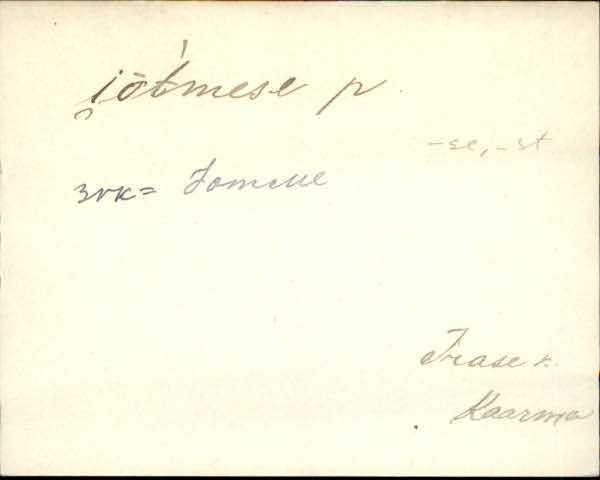 i̮ōt́mese p.
-se, -st
зvк = Jomene
Irase k.
Kaarma